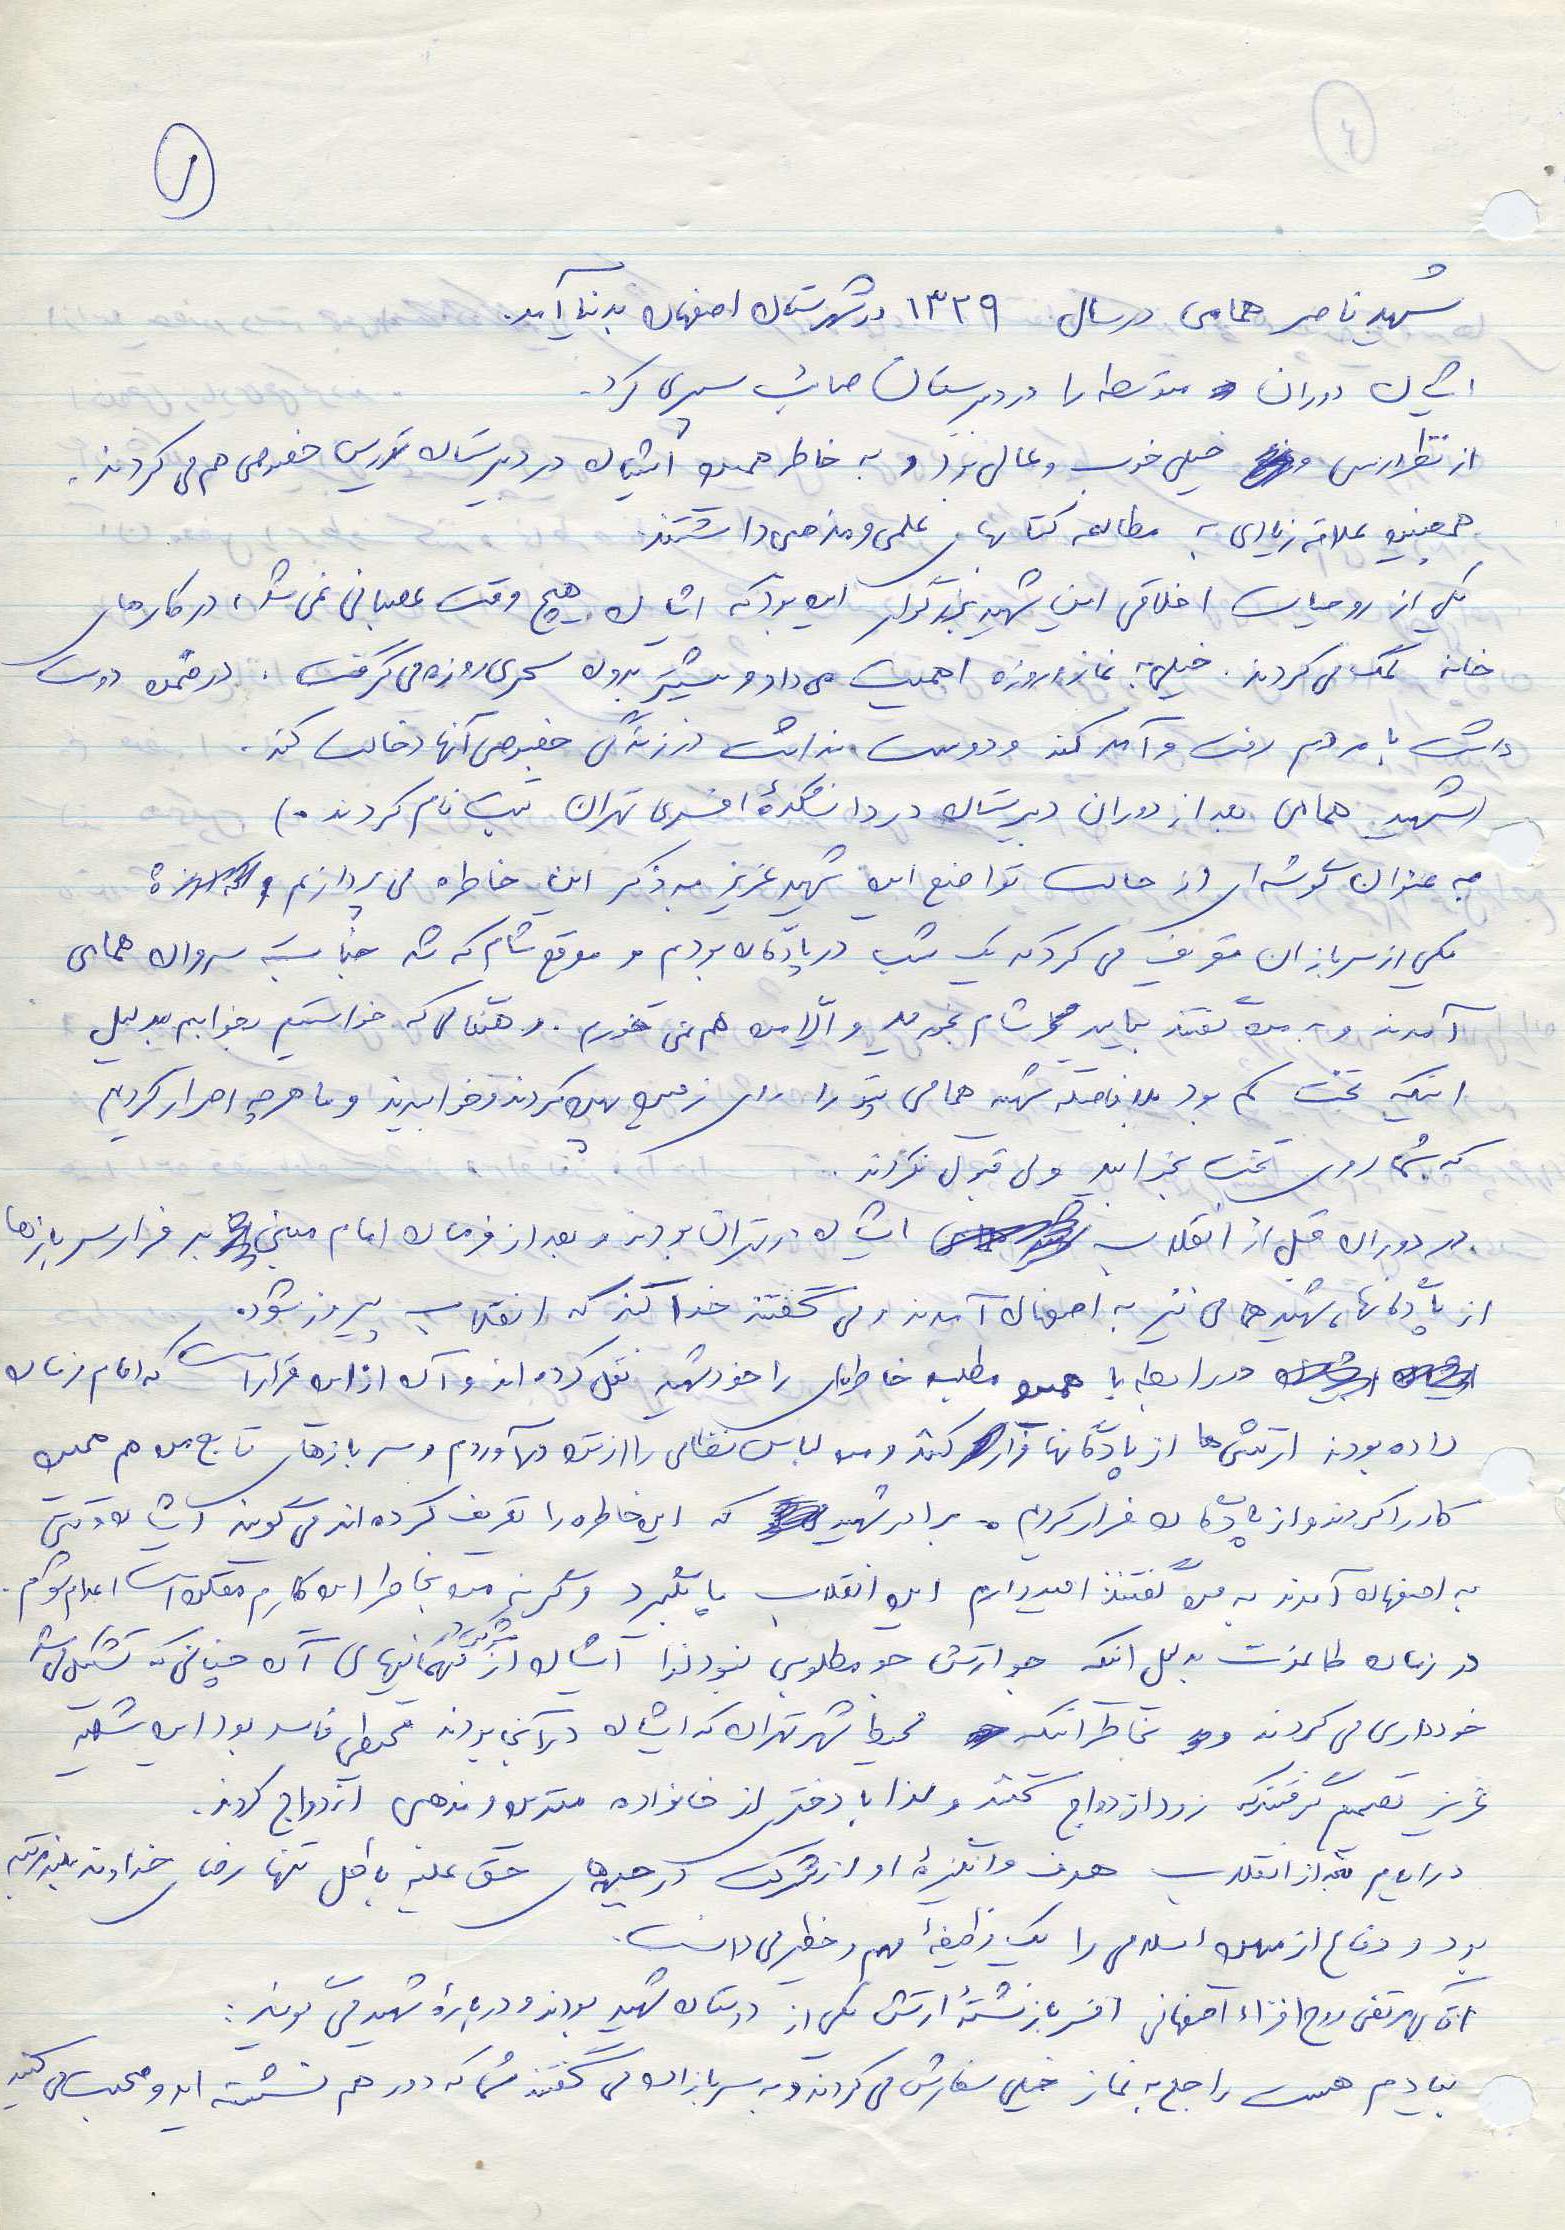 ۱
شهید ناصر همامی در سال ۱۳۲۹ در شهرستان اصفهان بدنیا آمد.
ایشان دوران متوسطه را در دبیرستان صائب سپری کرد.
از نظر درسی خیلی خوب و عالی بود و به خاطر همین ایشان در دبیرستان تدریس خصوصی هم می کردند.
همچنین علاقه زیادی به مطالعه کتابهای علمی و مذهبی داشتند.
یکی از روحیات اخلاقی این شهید بزرگوار این بود که ایشان هیچ وقت عصبانی نمی شد، در کارهای
خانه کمک می کردند. خیلی به نماز و روزه اهمیت می داد و بیشتر بدون سحری روزه می گرفت. در ضمن دوست
داشت با مردم رفت و آمد کند و دوست نداشت در زندگی خصوصی آنها دخالت کند.
(شهید همامی بعد از دوران دبیرستان در دانشکدهٔ افسری تهران ثبت نام کردند.)
به عنوان گوشه ای از حالت تواضع این شهید عزیز به ذکر این خاطره می پردازیم
یکی از سربازان تعریف می کرد که یک شب در پادگان بودم و موقع شام که شد جناب سروان همامی
آمدند و به من گفتند بیایید شام بخورید و الّا من هم نمی خورم. و هنگامی که خواستیم بخوابیم بدلیل
اینکه تخت کم بود بلافاصله شهید همامی پتو را روی زمین پهن کردند و خوابیدند و ما هرچه اصرار کردیم
که شما روی تخت بخوابید ولی قبول نکردند.
در دوران قبل از انقلاب ایشان در تهران بودند و بعد از فرمان امام مبنی بر فرار سربازها
از پادگانها، شهید همامی نیز به اصفهان آمدند و می گفتند خدا کند که انقلاب پیروز شود.
در رابطه با همین مطلب خاطره ای را خود شهید نقل کرده اند و آن از این قرار است که امام فرمان
داده بودند ارتشی ها از پادگانها فرار کنند و من لباس نظامی را از تن در آوردم و سربازهای تابع من هم همین
کار را کردند و از پادگان فرار کردیم. برادر شهید که این خاطره را تعریف کرده اند می گویند ایشان وقتی
به اصفهان آمدند به من گفتند امیدوارم این انقلاب پا بگیرد و گرنه من بخاطر این کارم ممکن است اعدام شوم.
در زمان طاغوت بدلیل اینکه جو ارتش جو مطلوبی نبود لذا ایشان از شرکت در مهمانیهای آن چنانی که تشکیل می شد
خودداری می کردند و بخاطر اینکه محیط شهر تهران که ایشان در آنجا بودند محیطی فاسد بود این شهید
عزیز تصمیم گرفتند که زود ازدواج کنند و لذا با دختری از خانواده متدین و مذهبی ازدواج کردند.
در ایام بعد از انقلاب هدف و انگیزهٔ او از شرکت در جبهه های حق علیه باطل تنها رضای خداوند بلند مرتبه
بود و دفاع از میهن اسلامی را یک وظیفهٔ مهم و خطیر می دانست.
آقای مرتضی روح افزاء اصفهانی افسر بازنشستهٔ ارتش یکی از دوستان شهید بودند و دربارهٔ شهید می گویند:
بیادم هست راجع به نماز خیلی سفارش می کردند و به سربازان می گفتند شما که دور هم نشسته اید و صحبت می کنید